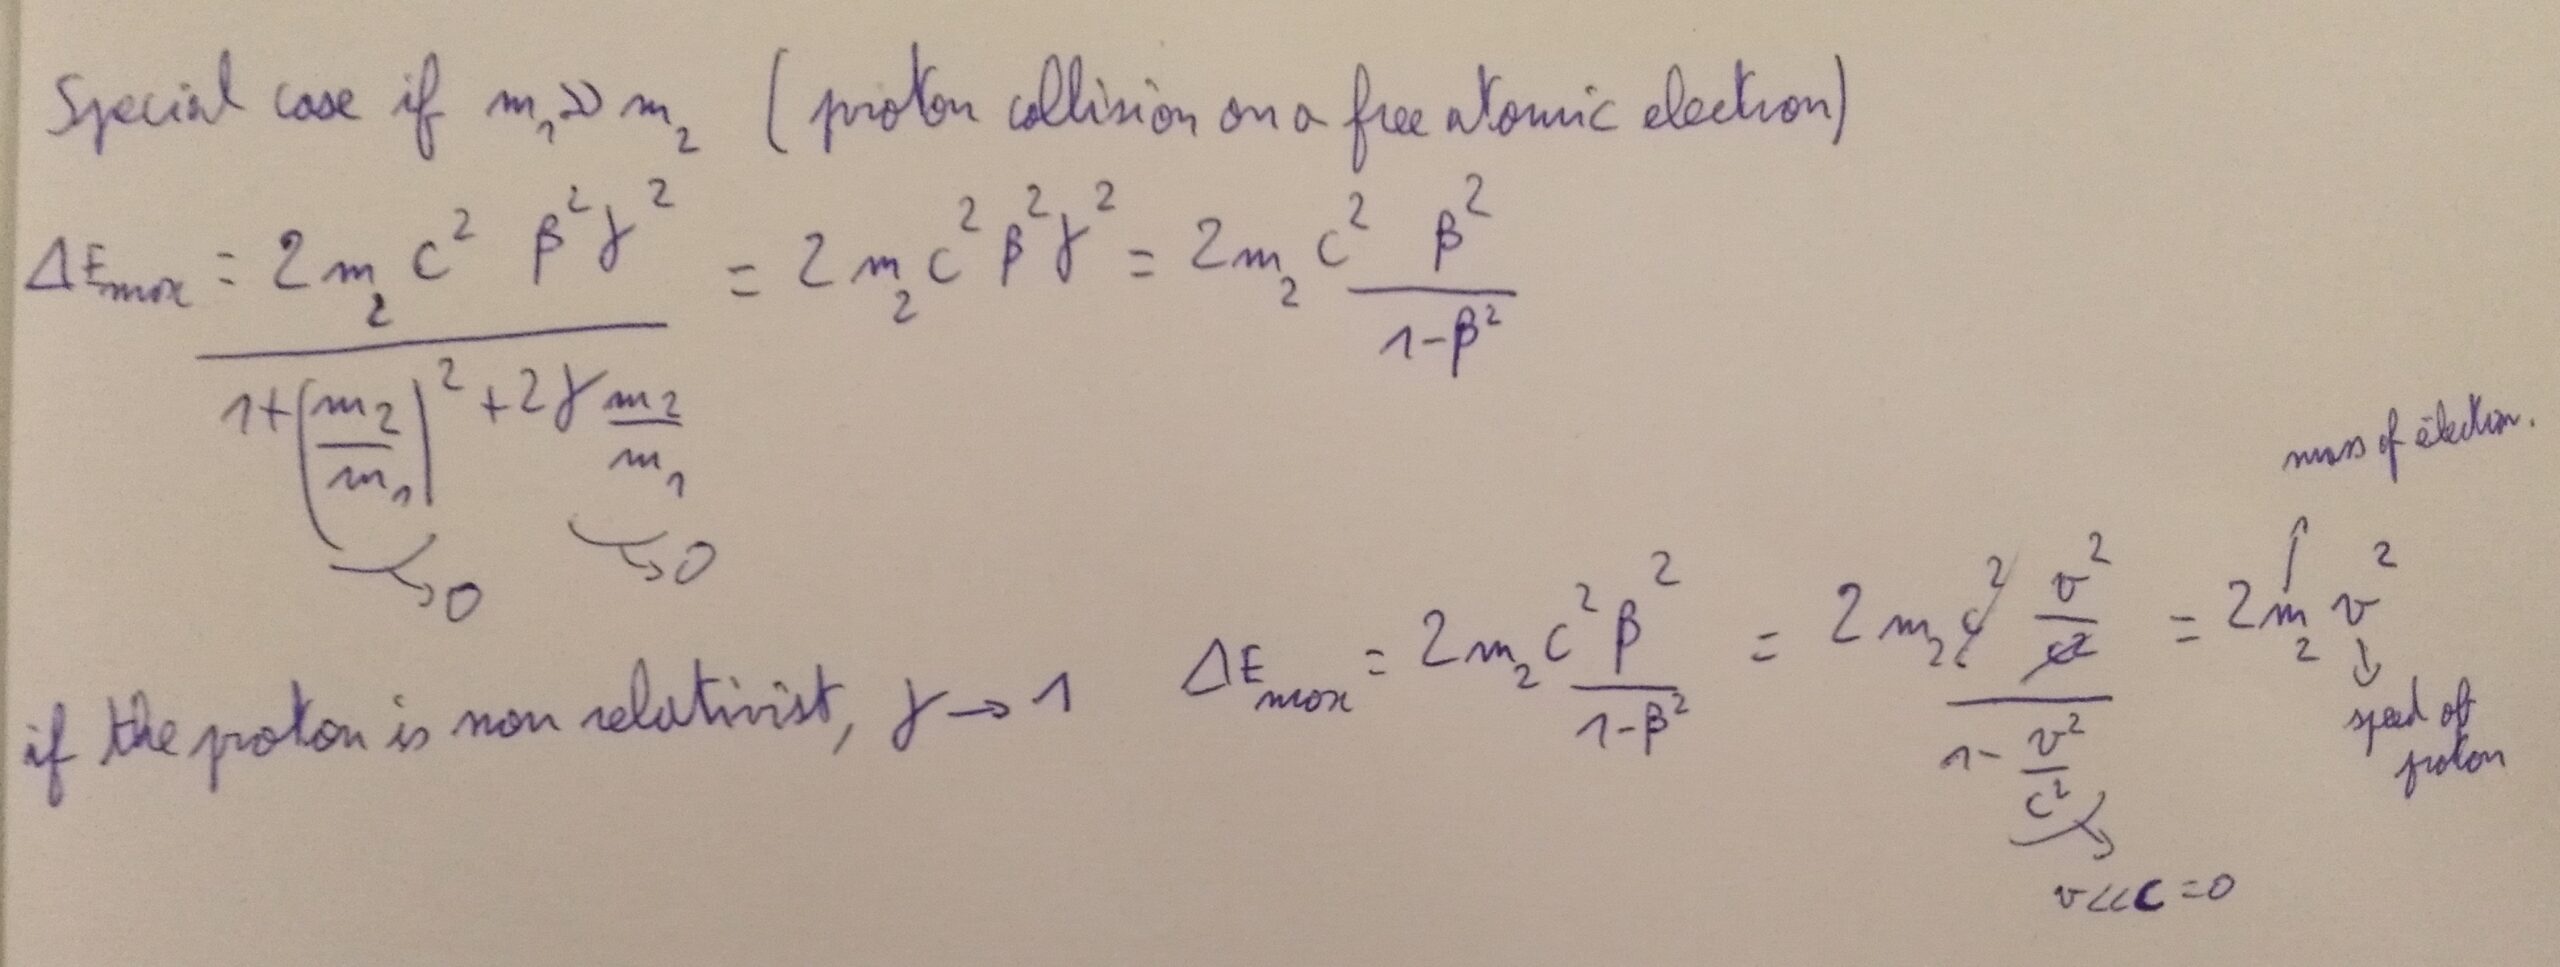 Special case if m₁ >> m₂ (proton collision on a free atomic electron)
ΔEmax = 2m₂c² β²γ² / (1+(m₂/m₁)² + 2γ m₂/m₁) = 2m₂c²β²γ² = 2m₂c² β²/(1-β²)
→0 →0
mass of electron.
if the proton is non relativist, γ → 1 ΔEmax = 2m₂c² β²/(1-β²) = 2m₂c² (v²/c²)/(1-v²/c²) = 2m₂v²
speed of
proton
v<<c =0